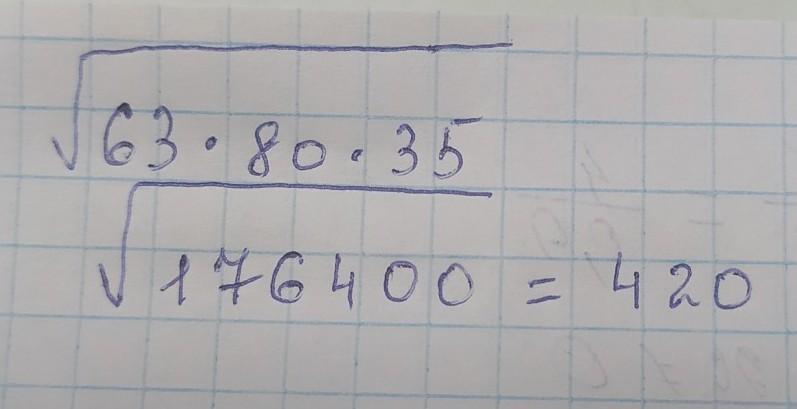 √63·80·35
√176400 = 420